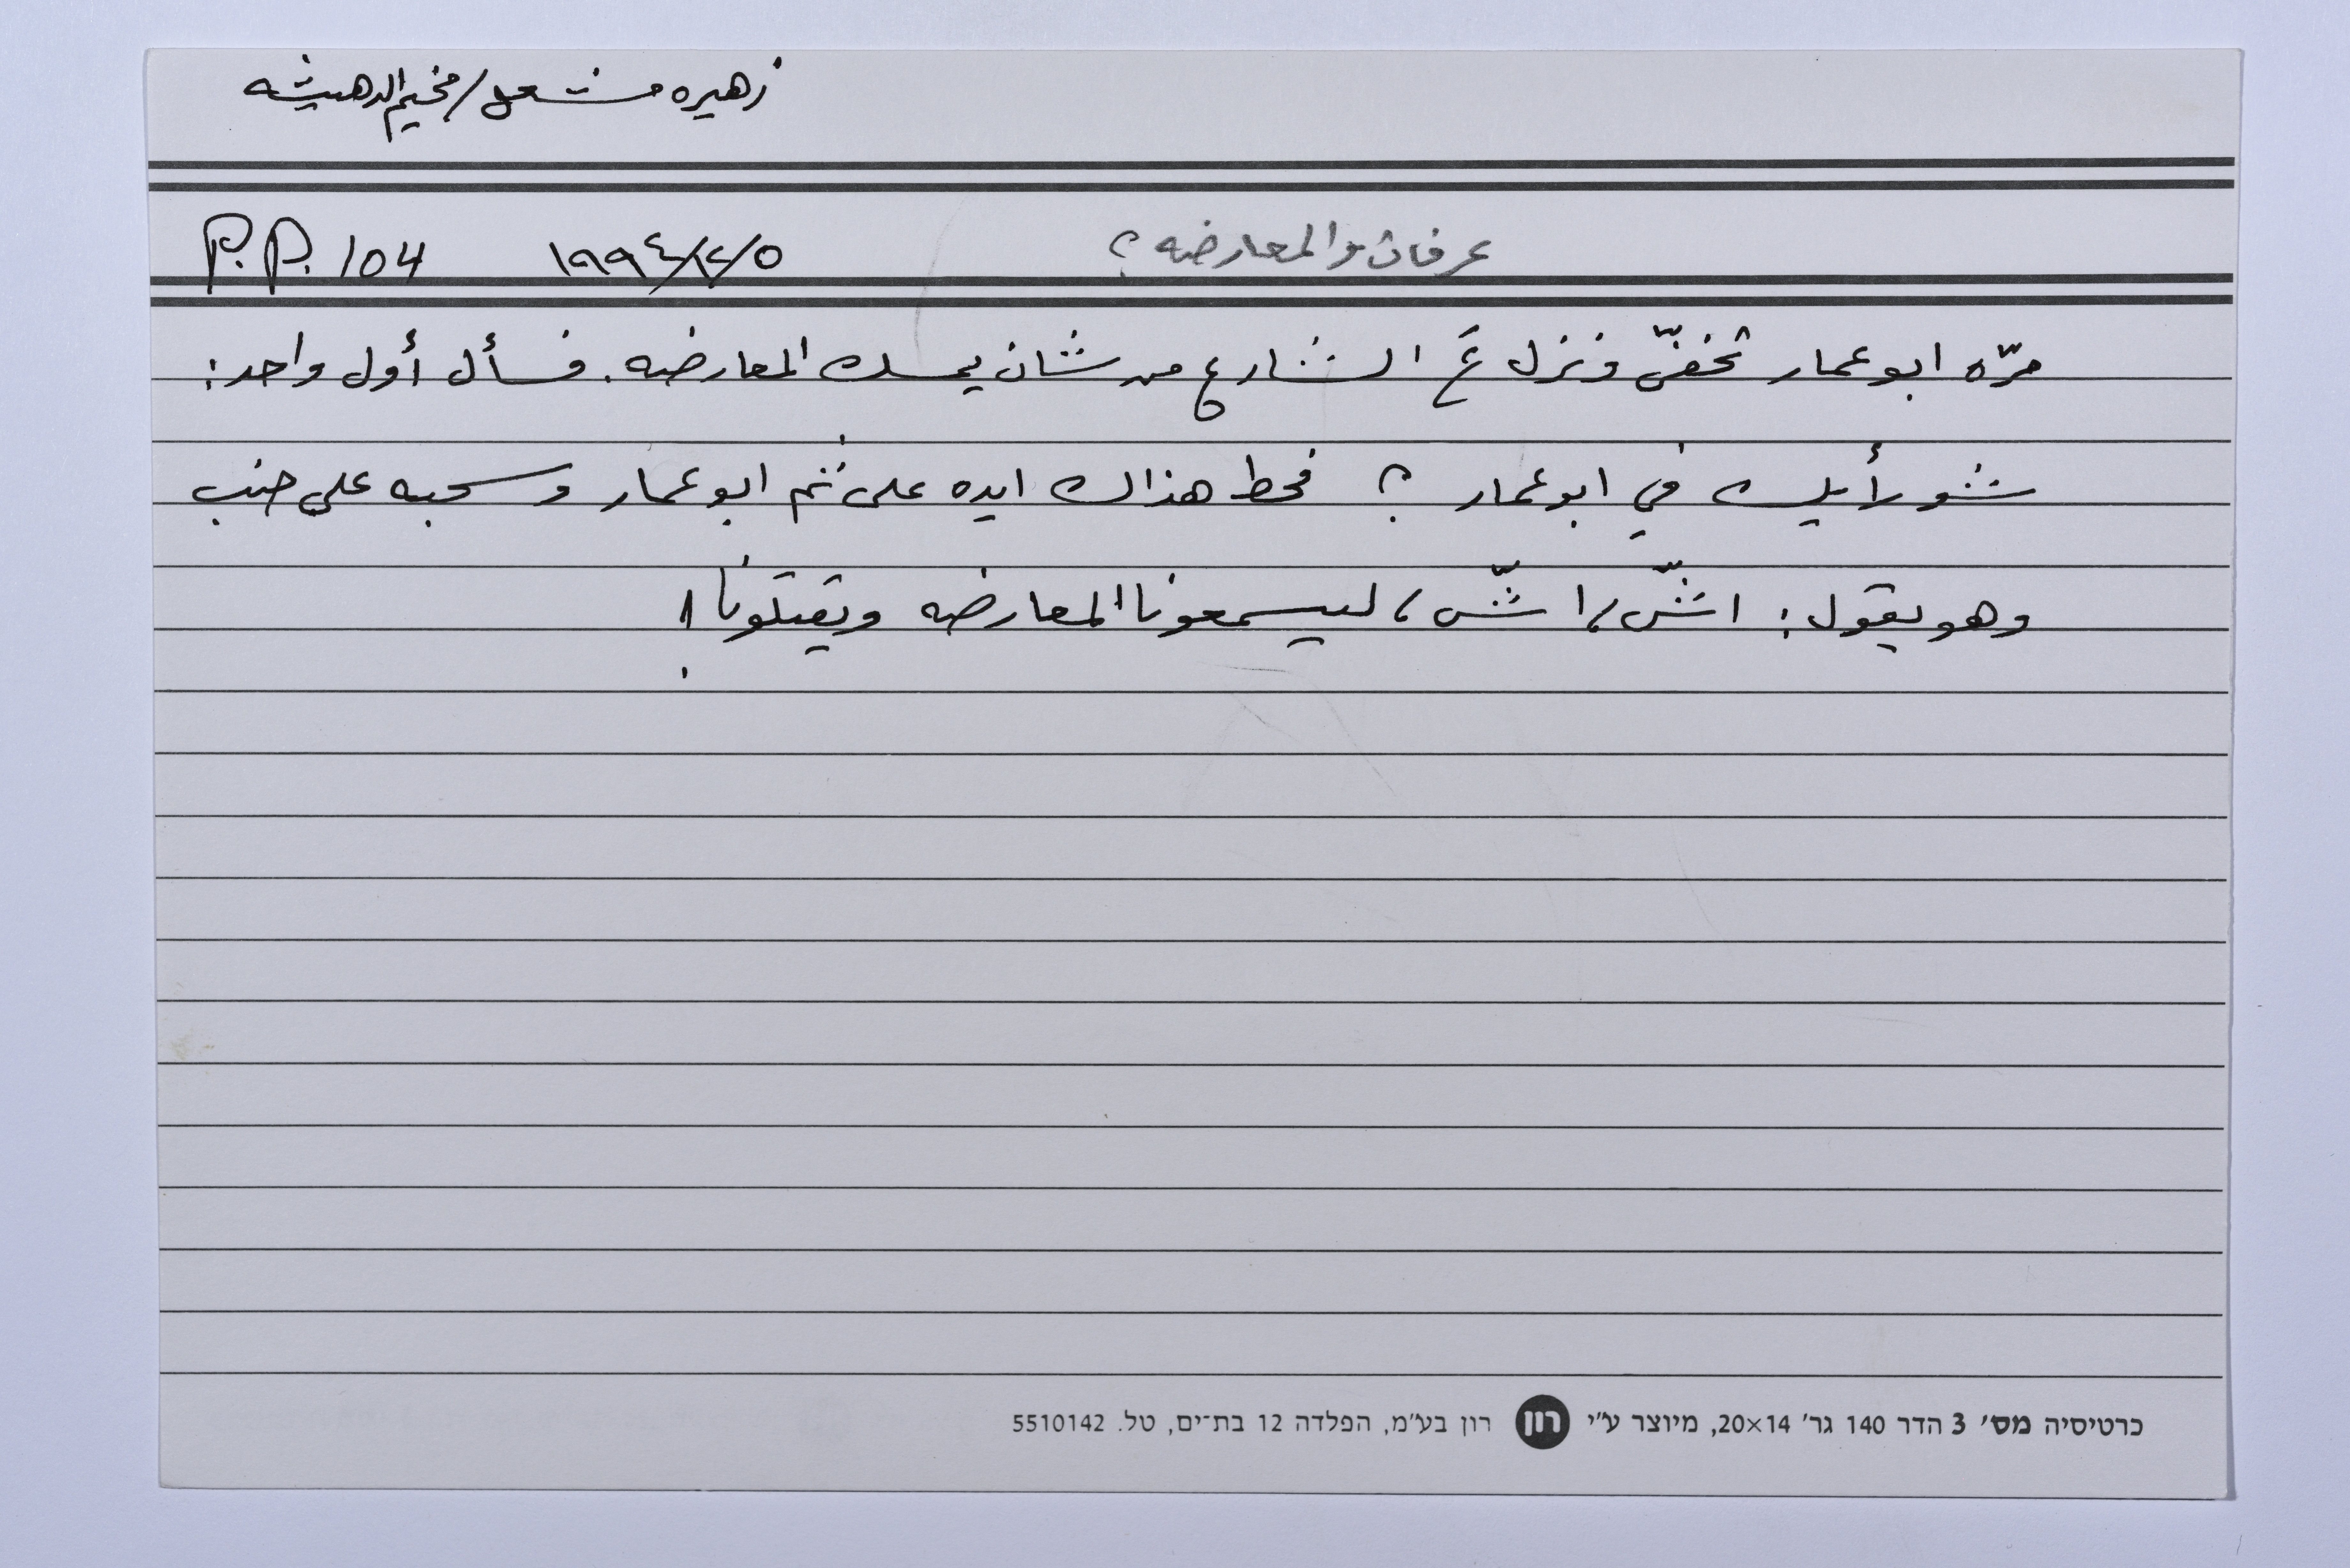 زهيره مشعل / مخيم الدهيشه
عرفات والمعارضه ؟ ١٩٩٤/٢/٥ P.P. 104
مرّه ابو عمار تخفّى ونزل عَ الشارع من شان يمسك المعارضه. فسأل أول واحد:
شو رأيك في ابو عمار ؟ فحط هذاك ايده على ثم ابو عمار وسحبه على جنب
وهو يقول: اشّش، اشّش، ليسمعونا المعارضه ويقتلونا!
כרטיסיה מס׳ 3 הדר 140 גר׳ 20×14, מיוצר ע״י רון רון בע״מ, הפלדה 12 בת־ים, טל. 5510142